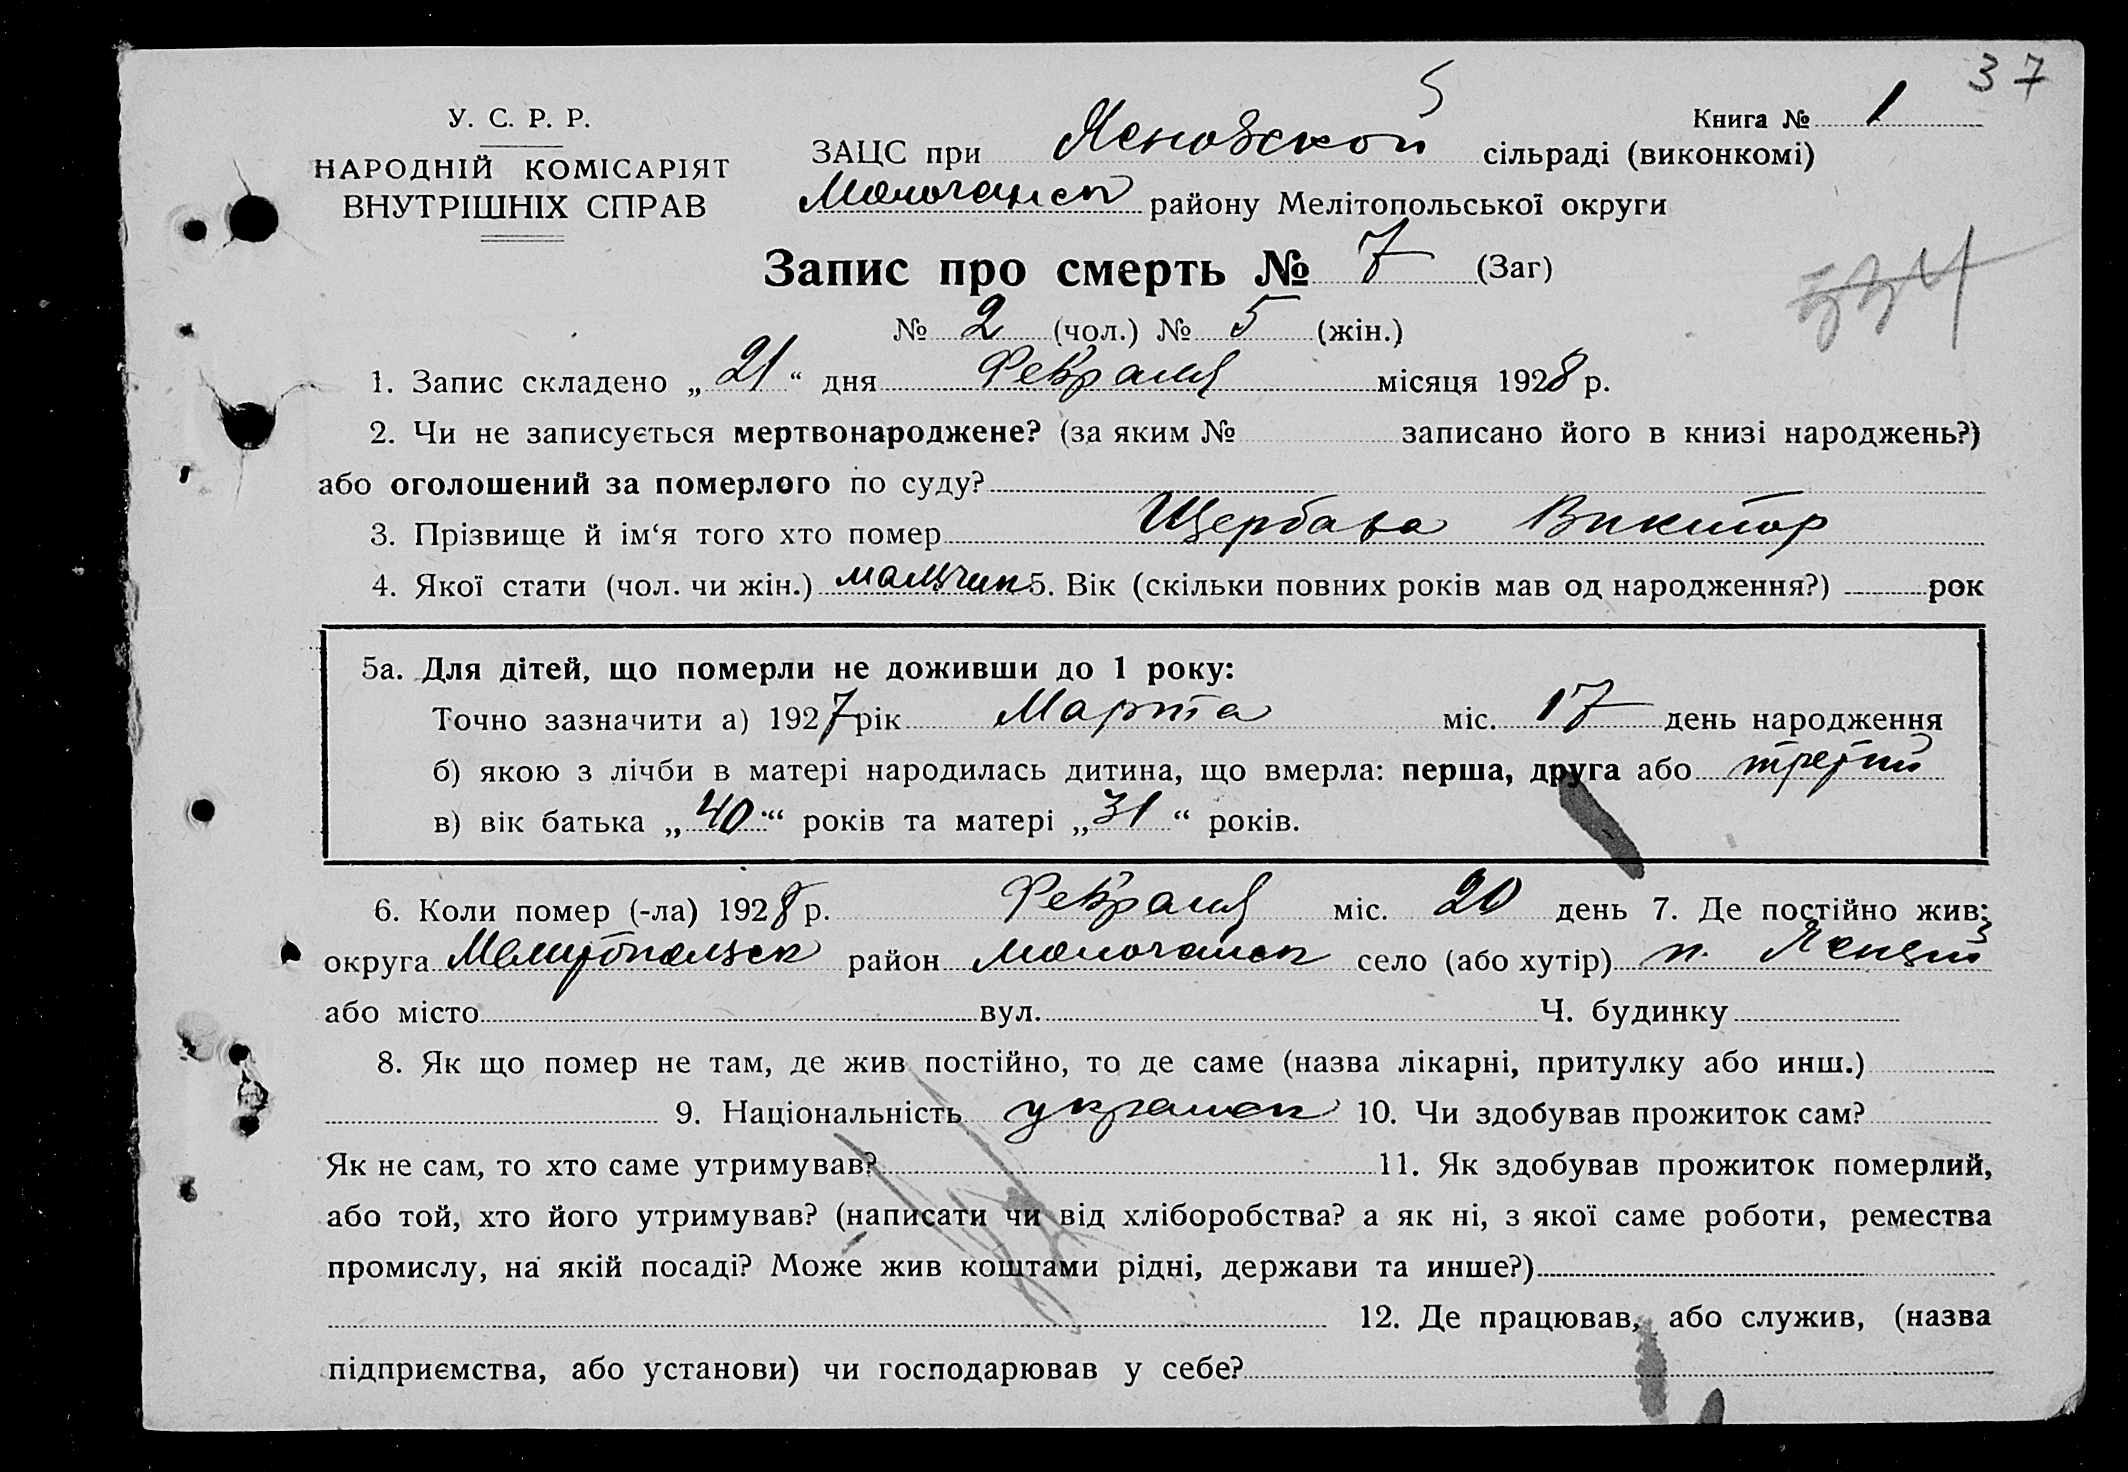 37
У. С. Р. Р.
НАРОДНІЙ КОМІСАРІЯТ
ВНУТРІШНІХ СПРАВ
Книга № 1
ЗАЦС при Ясновской сільраді (виконкомі)
Молочанск району Мелітопольської округи
Запис про смерть № 7 (Заг)
№ 2 (чол.) № 5 (жін.)
1. Запис складено „ 21 “ дня Февраля місяця 1928 р.
2. Чи не записується мертвонароджене? (за яким № записано його в книзі народжень?)
або оголошений за померлого по суду?
3. Прізвище й ім‘я того хто помер Щербава Виктор
4. Якої стати (чол. чи жін.) мальчик 5. Вік (скільки повних років мав од народження?) рок
5а. Для дітей, що померли не доживши до 1 року:
Точно зазначити а) 1927 рік Марта міс. 17 день народження
б) якою з лічби в матері народилась дитина, що вмерла: перша, друга або третий
в) вік батька „ 40 “ років та матері „ 31 “ років.
6. Коли помер (-ла) 1928 р. Февраля міс. 20 день 7. Де постійно жив:
округа Мелитопольск район Молочанск село (або хутір) п.
або місто вул. Ч. будинку
8. Як що помер не там, де жив постійно, то де саме (назва лікарні, притулку або инш.)
9. Національність украинск 10. Чи здобував прожиток сам?
Як не сам, то хто саме утримував? 11. Як здобував прожиток померлий,
або той, хто його утримував? (написати чи від хліборобства? а як ні, з якої саме роботи, ремества
промислу, на якій посаді? Може жив коштами рідні, держави та инше?)
12. Де працював, або служив, (назва
підприємства, або установи) чи господарював у себе?